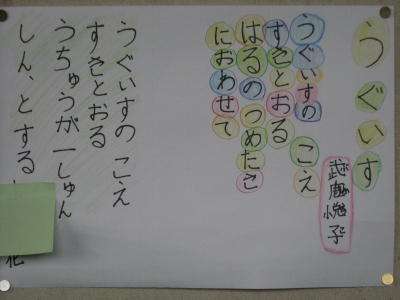 うぐいす
武鹿悦子
うぐいすの こえ
すきとおる
はるのつめたさ
におわせて
うぐいすの こえ
すきとおる
うちゅうが一しゅん
しん、とする
花